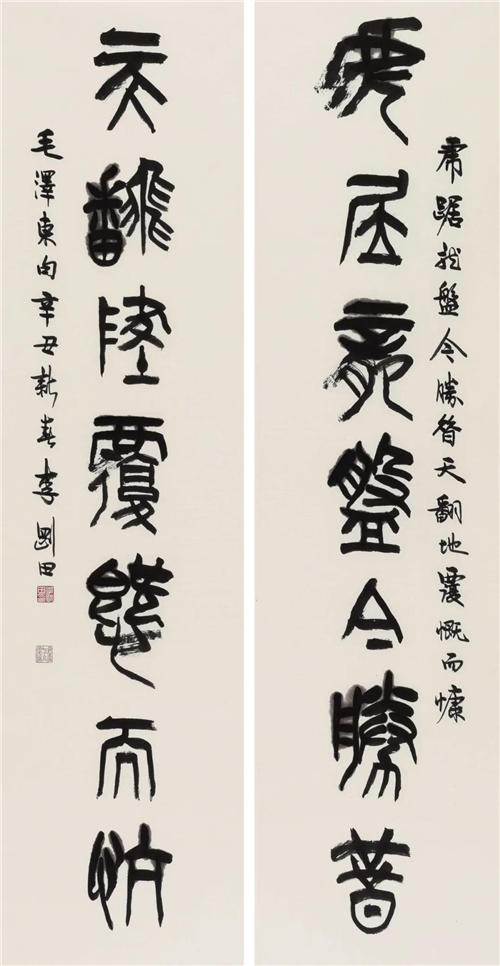 虎踞龙盤今勝昔天翻地覆慨而慷
虎居龍盤今勝昔
天飜墬覆慨而忼
毛澤東句辛丑新春李剛田